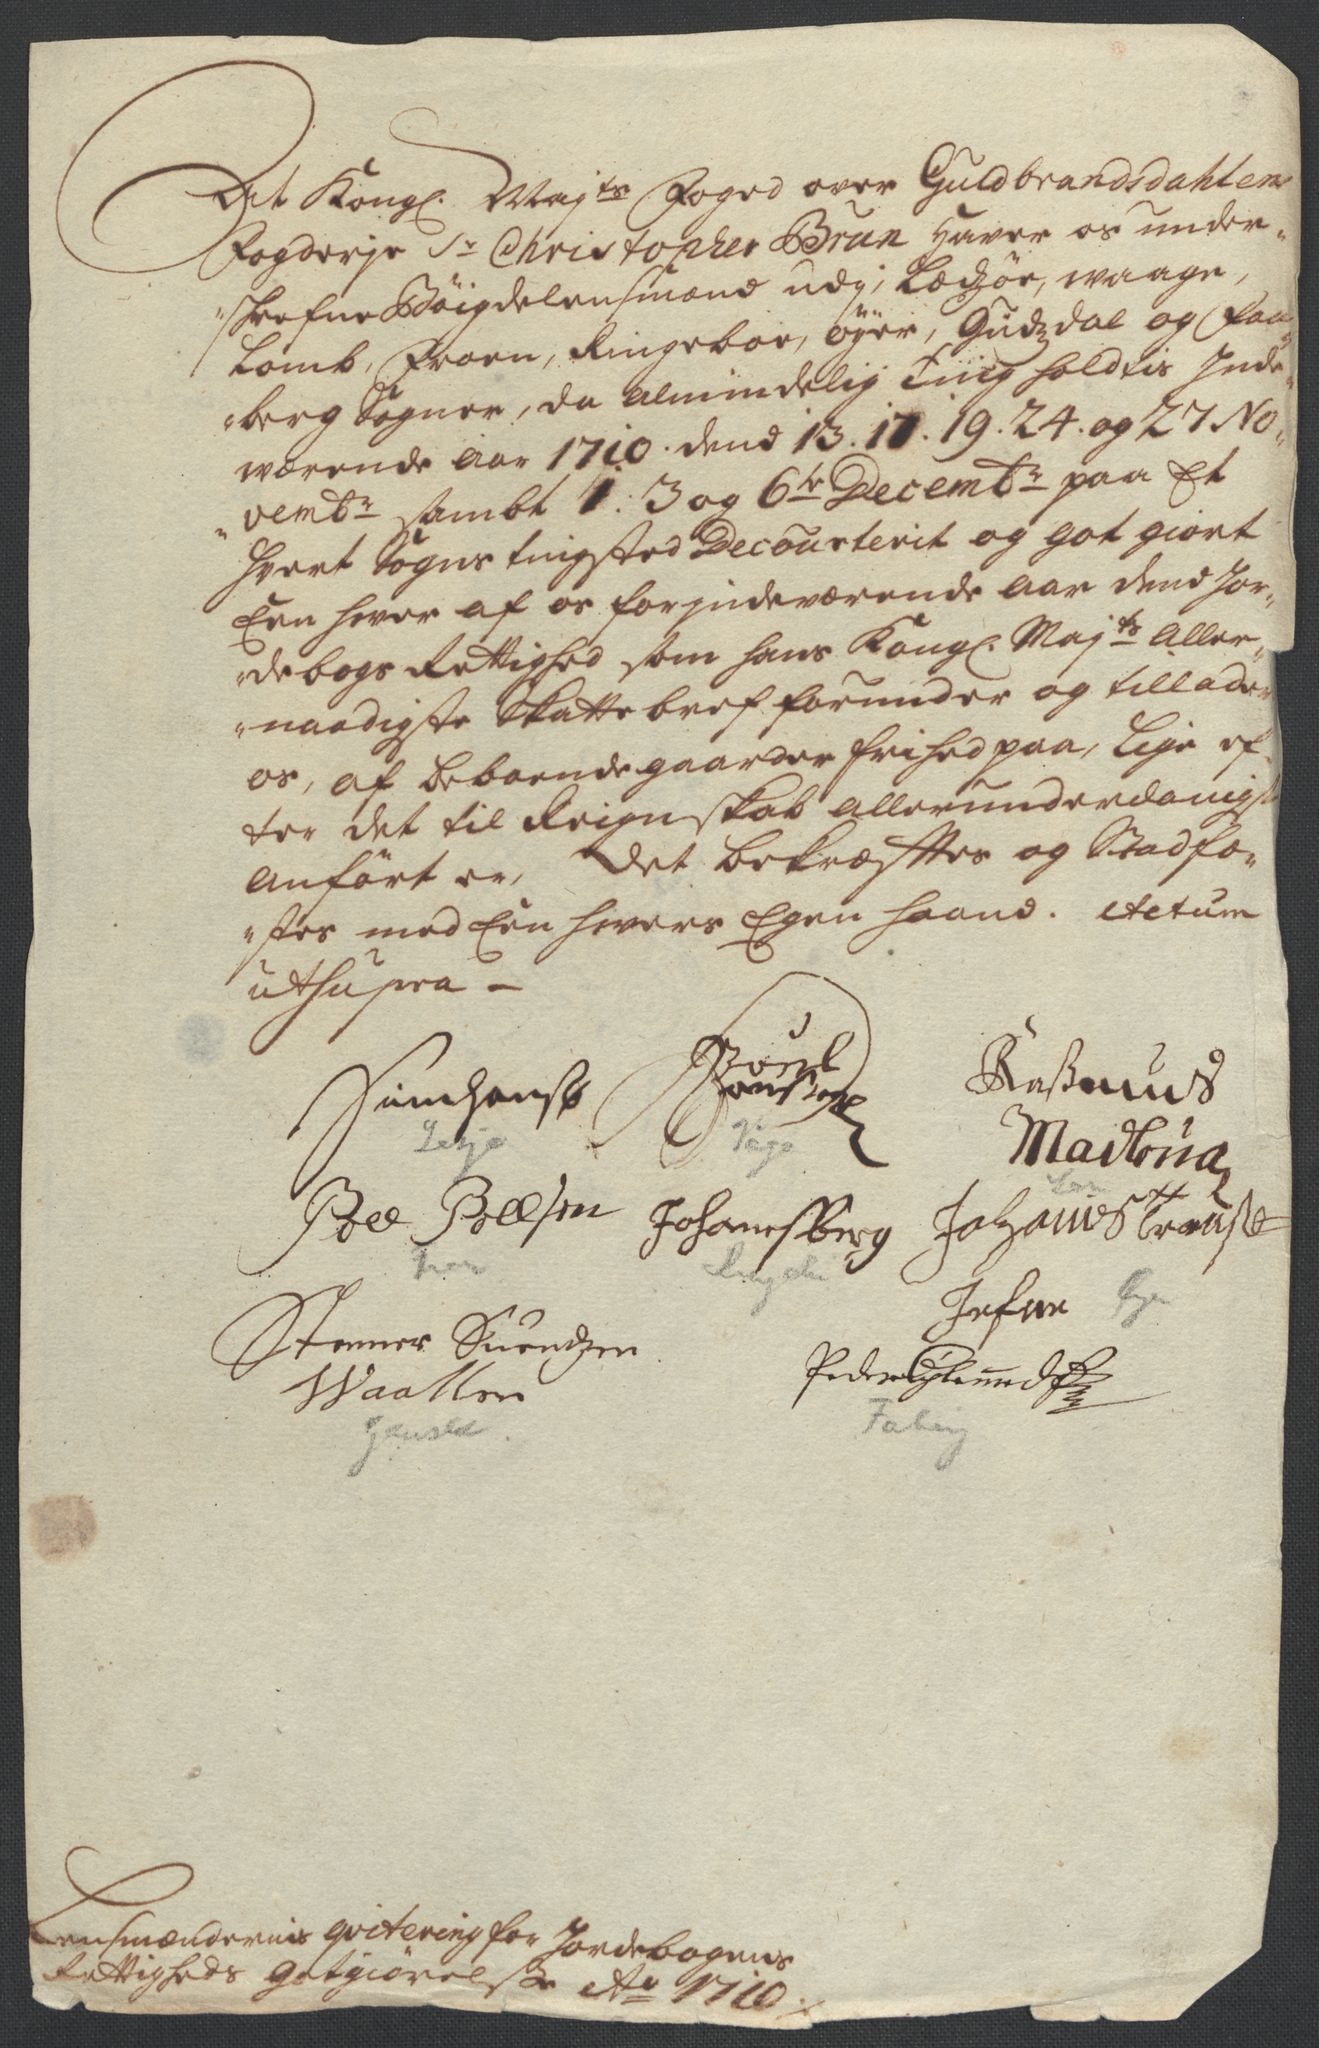 Det Kongl. Mayts Foged over Guldbrandsdahlens
Fogderje Sr Christopher Brun Haver os under-
"skrefne Böigdelensmænd udj, Ledsöe, Waage,
Lomb, Froen, Ringeboe, öyer, Gudzdal og Faa-
"berg Sogner, da almindelig Ting holdtis Inde-
værende aar 1710. dend 13. 17. 19. 24. og 27 No-
"vembr sambt 1. 3 og 6te Decembr paa Et
hvert Sogns tingsted Decourterit og got giort
Een hver af os for jndeværende aar dend Jor-
"debogs Rettighed som hans Kongl. Majts Aller-
"naadigste Skatte bref forunder og tillader
os, af beboende gaarder frihed paa, lige ef-
ter det til Reignskab allerunderdanigst
anfört er, Det bekræfttes og Stadfæ-
"stes med Een hvers Egen haand. Actum
utsupra –
Simhansß Pouel Rasmus
Lesje Vaga Madtsua
Poel Poelsen Johanesberg Johannes Tranße
Fron
Stenner Suendzen Jefne Øye
Waallen Peder
Gausdal. Faberg
Lensmændernis qvitering for Jordebogens
Rettigheds Gotgiörelße Ao 1710.